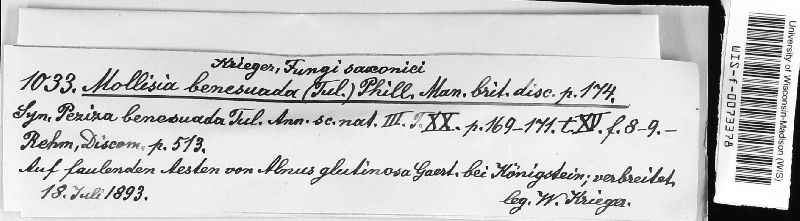 Krieger, Fungi saxonici
1033. Mollisia benesuada (Tul.) Phill. Man. brit. disc. p. 174.
Syn. Peziza benesuada Tul. Ann. sc. nat. III. T. XX. p. 169–171. t. XV. f. 8–9. –
Rehm, Discom. p. 513.
Auf faulenden Aesten von Alnus glutinosa Gaert. bei Königstein; verbreitet.
18. Juli 1893.
leg. W. Krieger.
University of Wisconsin-Madison (WIS)
WIS-f-0073378